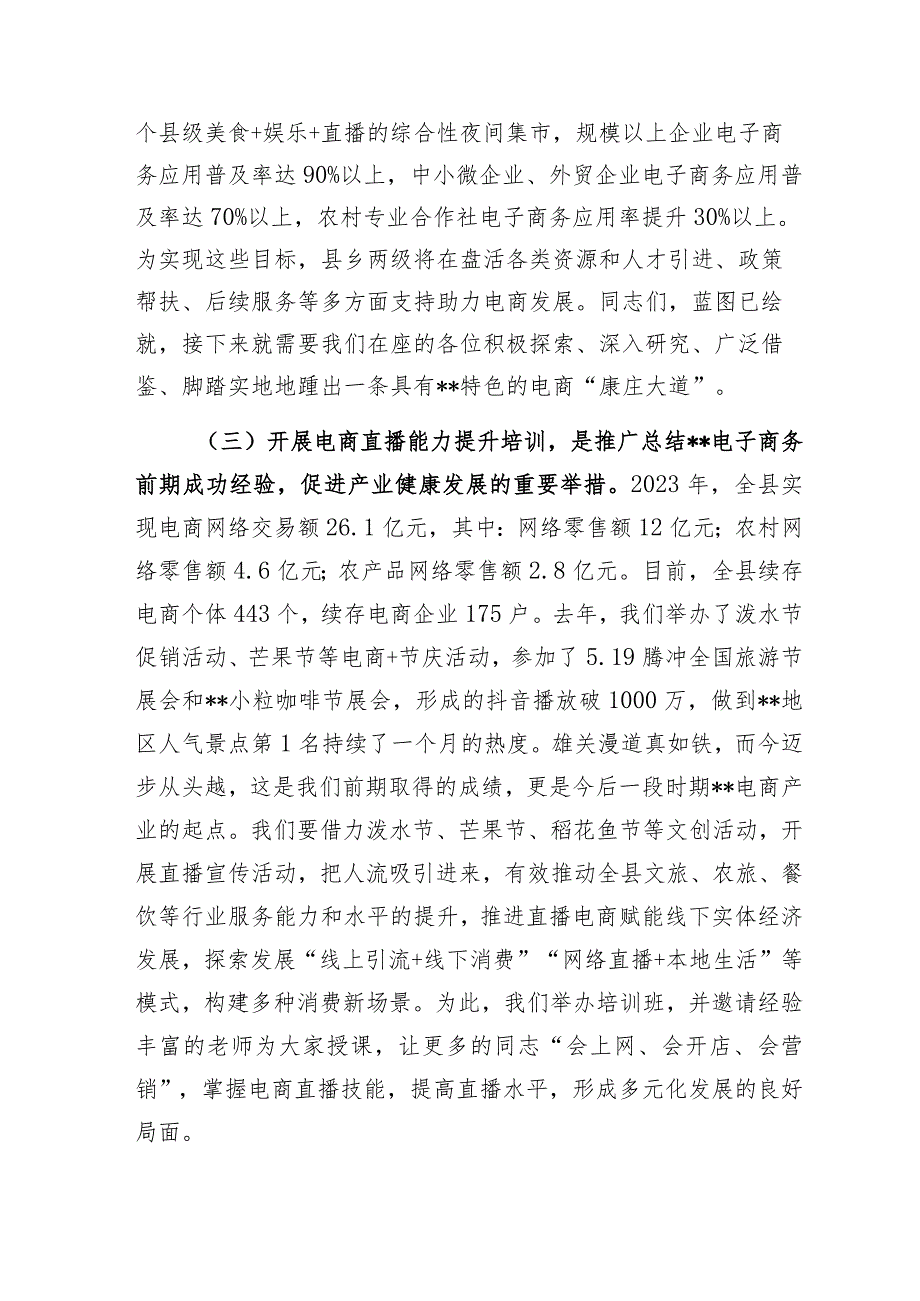 个县级美食+娱乐+直播的综合性夜间集市，规模以上企业电子商
务应用普及率达 90%以上，中小微企业、外贸企业电子商务应用普
及率达 70%以上，农村专业合作社电子商务应用率提升 30%以上。
为实现这些目标，县乡两级将在盘活各类资源和人才引进、政策
帮扶、后续服务等多方面支持助力电商发展。同志们，蓝图已绘
就，接下来就需要我们在座的各位积极探索、深入研究、广泛借
鉴、脚踏实地地踵出一条具有**特色的电商“康庄大道”。
（三）开展电商直播能力提升培训，是推广总结**电子商务
前期成功经验，促进产业健康发展的重要举措。2023 年，全县实
现电商网络交易额 26.1 亿元，其中：网络零售额 12 亿元；农村网
络零售额 4.6 亿元；农产品网络零售额 2.8 亿元。目前，全县续存
电商个体 443 个，续存电商企业 175 户。去年，我们举办了泼水节
促销活动、芒果节等电商+节庆活动，参加了 5.19 腾冲全国旅游节
展会和**小粒咖啡节展会，形成的抖音播放破 1000 万，做到**地
区人气景点第 1 名持续了一个月的热度。雄关漫道真如铁，而今迈
步从头越，这是我们前期取得的成绩，更是今后一段时期**电商产
业的起点。我们要借力泼水节、芒果节、稻花鱼节等文创活动，开
展直播宣传活动，把人流吸引进来，有效推动全县文旅、农旅、餐
饮等行业服务能力和水平的提升，推进直播电商赋能线下实体经济
发展，探索发展“线上引流+线下消费”“网络直播+本地生活”等
模式，构建多种消费新场景。为此，我们举办培训班，并邀请经验
丰富的老师为大家授课，让更多的同志“会上网、会开店、会营
销”，掌握电商直播技能，提高直播水平，形成多元化发展的良好
局面。